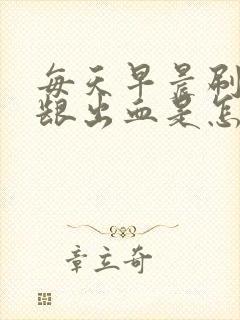 每天早晨刷
龈出血是怎
章立奇